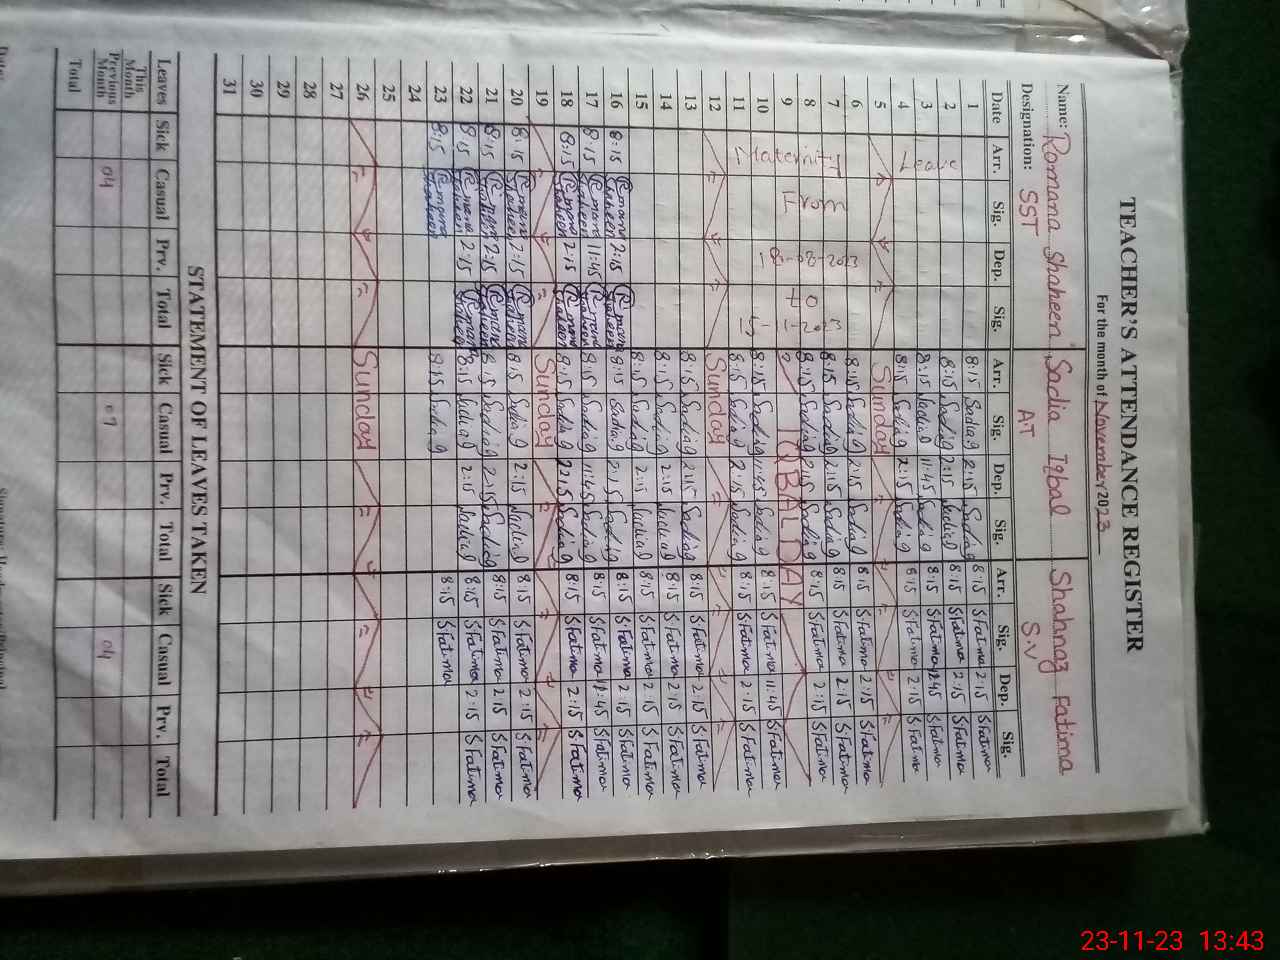 TEACHER'S ATTENDANCE REGISTER
For the month of November 2023
Name: Romana Shaheen Sadia Iqbal Shahnaz Fatima
Designation: SST AT S.V
Date Arr. Sig. Dep. Sig. Arr. Sig. Dep. Sig. Arr. Sig. Dep. Sig.
1 8:15 Sadia 2:15 Sadia 8:15 SFatima 2:15 SFatima
2 8:15 Sadia 2:15 Sadia 8:15 SFatima 2:15 SFatima
3 Leave 8:15 Sadia 11:45 Sadia 8:15 SFatima 12:45 SFatima
4 8:15 Sadia 2:15 Sadia 8:15 SFatima 2:15 SFatima
5 Sunday
6 8:15 Sadia 2:15 Sadia 8:15 SFatima 2:15 SFatima
7 8:15 Sadia 2:15 Sadia 8:15 SFatima 2:15 SFatima
8 Maternity From 18-08-2023 to 15-11-2023 8:15 Sadia 2:15 Sadia 8:15 SFatima 2:15 SFatima
9 IQBAL DAY
10 8:15 Sadia 11:45 Sadia 8:15 SFatima 11:45 SFatima
11 8:15 Sadia 2:15 Sadia 8:15 SFatima 2:15 SFatima
12 Sunday
13 8:15 Sadia 2:15 Sadia 8:15 SFatima 2:15 SFatima
14 8:15 Sadia 2:15 Sadia 8:15 SFatima 2:15 SFatima
15 8:15 Sadia 2:15 Sadia 8:15 SFatima 2:15 SFatima
16 8:15 Romana Shaheen 2:15 Romana Shaheen 8:15 Sadia 2:15 Sadia 8:15 SFatima 2:15 SFatima
17 8:15 Romana Shaheen 11:45 Romana Shaheen 8:15 Sadia 11:45 Sadia 8:15 SFatima 12:45 SFatima
18 8:15 Romana Shaheen 2:15 Romana Shaheen 8:15 Sadia 2:15 Sadia 8:15 SFatima 2:15 SFatima
19 Sunday
20 8:15 Romana Shaheen 2:15 Romana Shaheen 8:15 Sadia 2:15 Sadia 8:15 SFatima 2:15 SFatima
21 8:15 Romana Shaheen 2:15 Romana Shaheen 8:15 Sadia 2:15 Sadia 8:15 SFatima 2:15 SFatima
22 8:15 Romana Shaheen 2:15 Romana Shaheen 8:15 Sadia 2:15 Sadia 8:15 SFatima 2:15 SFatima
23 8:15 Romana Shaheen 8:15 Sadia 8:15 SFatima
24
25
26 Sunday
27
28
29
30
31
STATEMENT OF LEAVES TAKEN
Leaves Sick Casual Prv. Total Sick Casual Prv. Total Sick Casual Prv. Total
This Month
Previous Month 04 07 04
Total
23-11-23 13:43